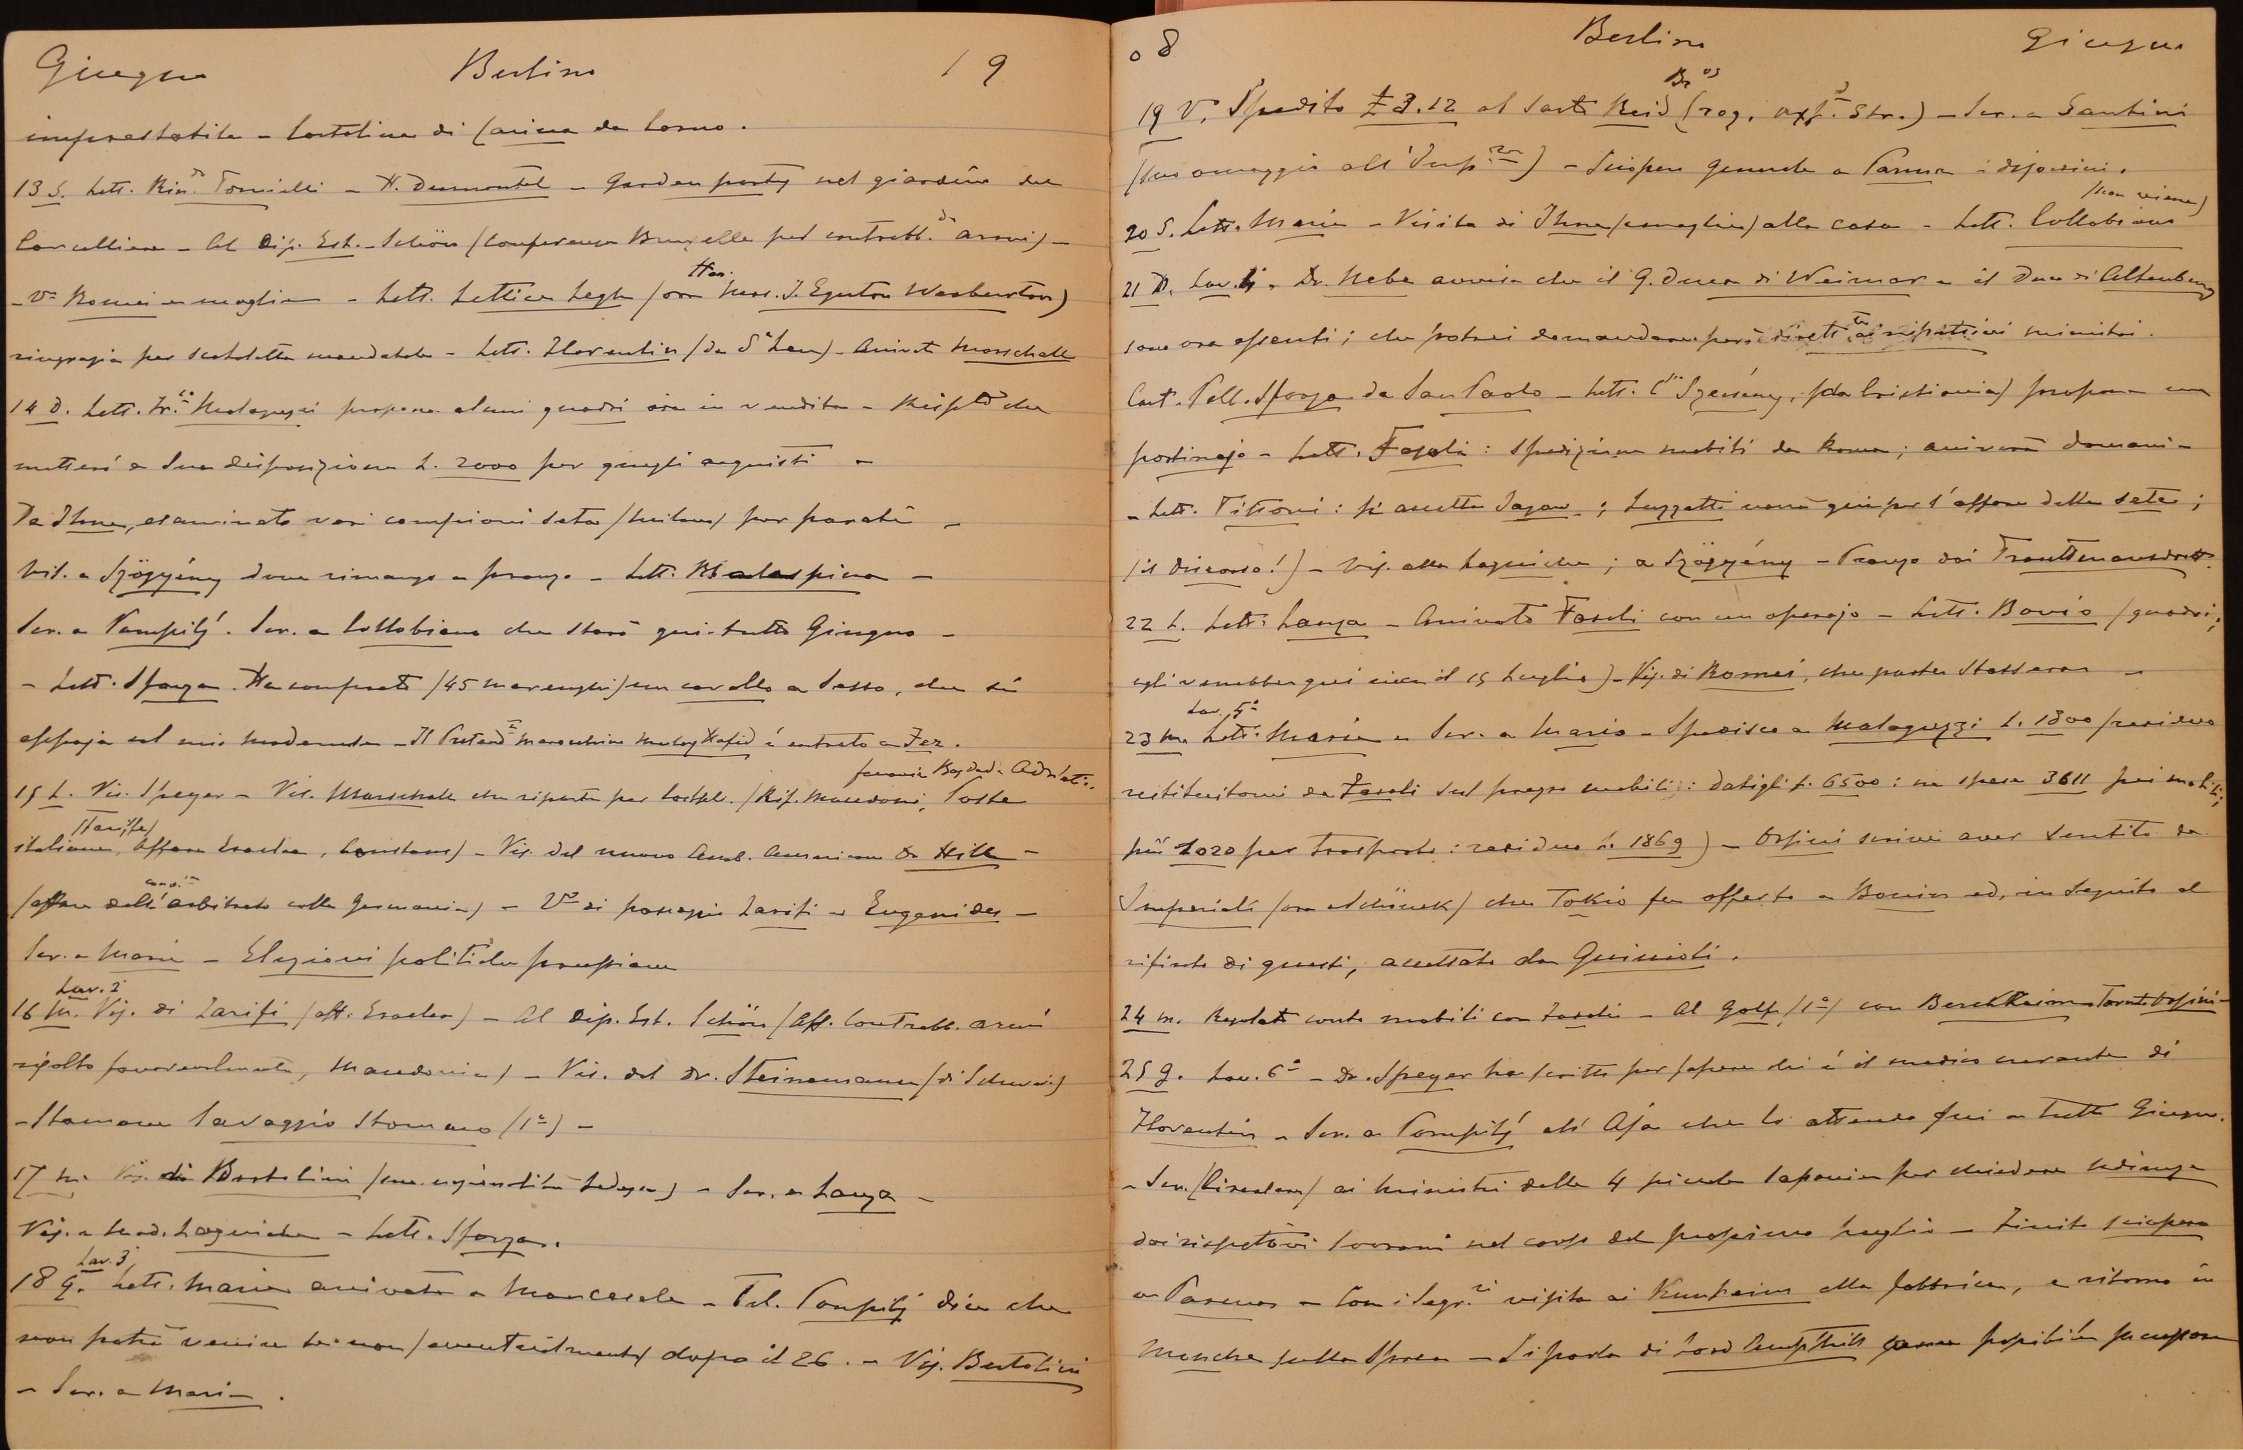 Giugno Berlino 19
imprestabile - Cartolina di Carina da Como.
13 S. Lett. Tornielli - H. Dumontel - Garden party nel giardino del
Cancelliere - Al Dip. Est. - Schön (Conferenza Bruxelles pel contrabb.° armi) -
- Va Romei e moglie - Lett. Lettice Legh (ora Hon. Mrs. J. Egerton Warburton)
ringrazia per scatoletta mandatale - Lett. Florentin (da St Leu) - Arrivato Marschall
14 D. Lett. Malaguzzi propone alcuni quadri ora in vendita - Risposto che
metterei a sua disposizione L. 2000 per quegli acquisti -
Da Ihne, esaminato vari campioni seta (Milano) per parati -
Vis. a Szögyény dove rimango a pranzo - Lett. Malaspina -
Scr. a Pompilj. Scr. a Collobiano che starò qui tutto Giugno -
- Lett. Sforza. Ha comprato (45 marenghi) un cavallo a Sasso, che si
appaja col mio - Il Pretend.te marocchino Muley Hafid è entrato a Fez.
15 L. Vis. Speyer - Vis. Marschall che riparte per Costpl. (Rif. Macedoni, ferrovia Bagdad - Adriatic. Poste
italiane, (Tariffe) Affare Eraclea, Constans) - Vis. del nuovo Amb. Americano Dr. Hill -
(affare dell' arbitrato colla Germania) - Va di passaggio Zarifi e Eugenides -
Scr. a Maria - Elezioni politiche prussiane
Lav. 2
16 M. Vis. di Zarifi (aff. Eraclea) - Al Dip. Est. Schön (Aff. Contrabb. armi
risolto favorevolmente, Macedonia) - Vis. del Dr. Steinemann
- Stamane lavaggio stomaco (1°) -
17 M. Vis. di Bertolini - Scr. a Lanza -
Vis. a Mad. Lagniche - Lett. Sforza.
Lav. 3
18 G. Lett. Maria arrivata a Mancasale - Tel. Pompilj dice che
non potrà venire se non (eventualmente) dopo il 26. - Vis. Bertolini
- Scr. a Maria.
08 Berlino Giugno
19 V. Spedito £ 3.12 al sarto Reid Br.os (209, Oxf.d Str.) - Scr. a Santini
(suo omaggio all' Imp.re) - Sciopero generale a Parma e disordini.
20 S. Lett. Maria - Visita di Ihne (e moglie) alla casa - Lett. Collobiano (non viene)
21 D. Lav. 4. Dr. Nebe avvisa che il G. Duca di Weimar e il Duca di Altenburg
sono ora assenti; che potrei domandare però dirett.te ai rispettivi ministri.
Cart. Pell. Sforza da San Paolo - Lett. Szécsény, (da Cristiania) propone un
portinajo - Lett. Fasoli: spedizione mobili da Roma; arriverà domani -
- Lett. Tittoni: si accetta Sagan; Luzzatti verrà qui per l'affare delle sete;
(il discorso!) - Vis. alla Lagniche; a Szögyény - Pranzo dai Trauttmansdorff.
22 L. Lett. Lanza - Arrivato Fasoli con un operajo - Lett. Bovio (quadri;
egli verrebbe qui circa il 15 Luglio) - Vis. di Romei, che parte stassera -
Lav. 5°
23 M. Lett. Maria e Scr. a Maria - Spedisco a Malaguzzi L. 1800 (residuo
restituitomi da Fasoli sul prezzo mobili: datigli f. 6500: ne spese 3611 pei mobili;
più 1020 per trasporto: residuo L. 1869) - Orsini scrive aver sentito da
Imperiali che Tokio fu offerto a Bonin ed, in seguito al
rifiuto di questi, accettato da Guiccioli.
24 M. Regolato conto mobili con Fasoli - Al Golf (1a) con Berckheim Orsini -
25 G. Lav. 6° - Dr. Speyer ha scritto per sapere chi è il medico curante di
Florentin - Scr. a Pompilj all' Aja che lo attendo qui a tutto Giugno.
- Scr. (Circolare) ai ministri delle 4 piccole Sassonie per chiedere udienza
dai rispettivi sovrani nel corso del prossimo luglio - Finito sciopero
a Parma - Con i Segr.ri visita ai Kunheim alla fabbrica, e ritorno in
Mouche sulla Sprea - Si parla di Lord come possibile successore